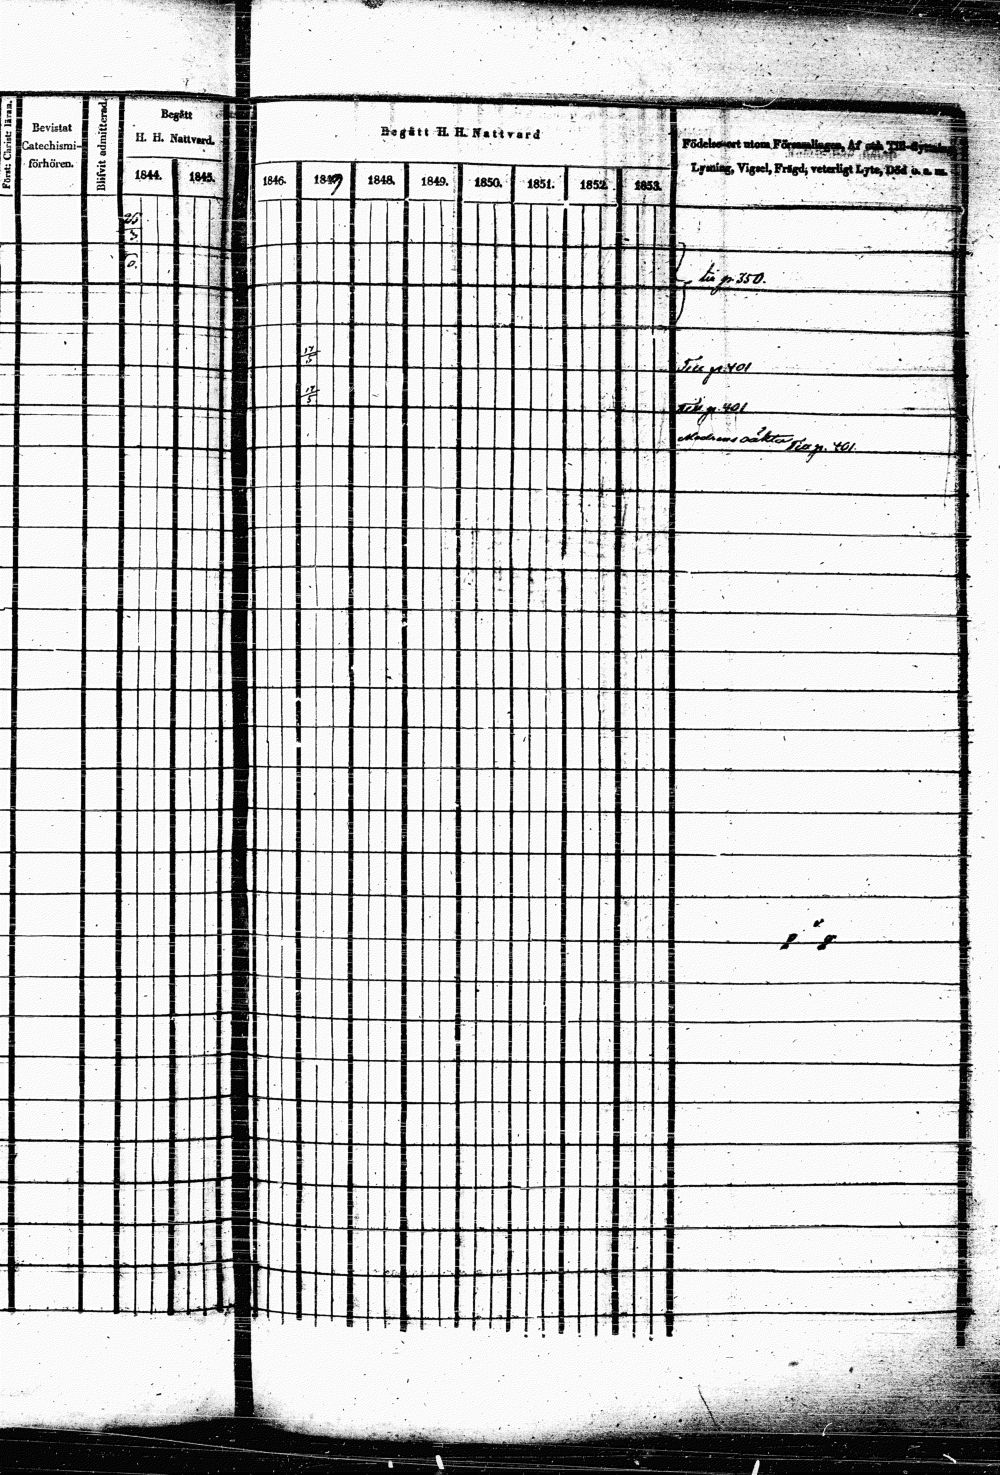 Först: Christ: läran.
Bevistat
Catechismi-
förhören.
Blifvit admitterad.
Begått
H. H. Nattvard.
1844. 1845.
Begått H. H. Nattvard
1846. 1847 1848. 1849. 1850. 1851. 1852. 1853.
Födelse-ort utom Församlingen, Af och Till-flyttning
Lysning, Vigsel, Frägd, veterligt Lyte, Död o. s. m.
350.
17/5
Till p. 401
17/5
Till p. 401
Modrens oäkta Till p. 401